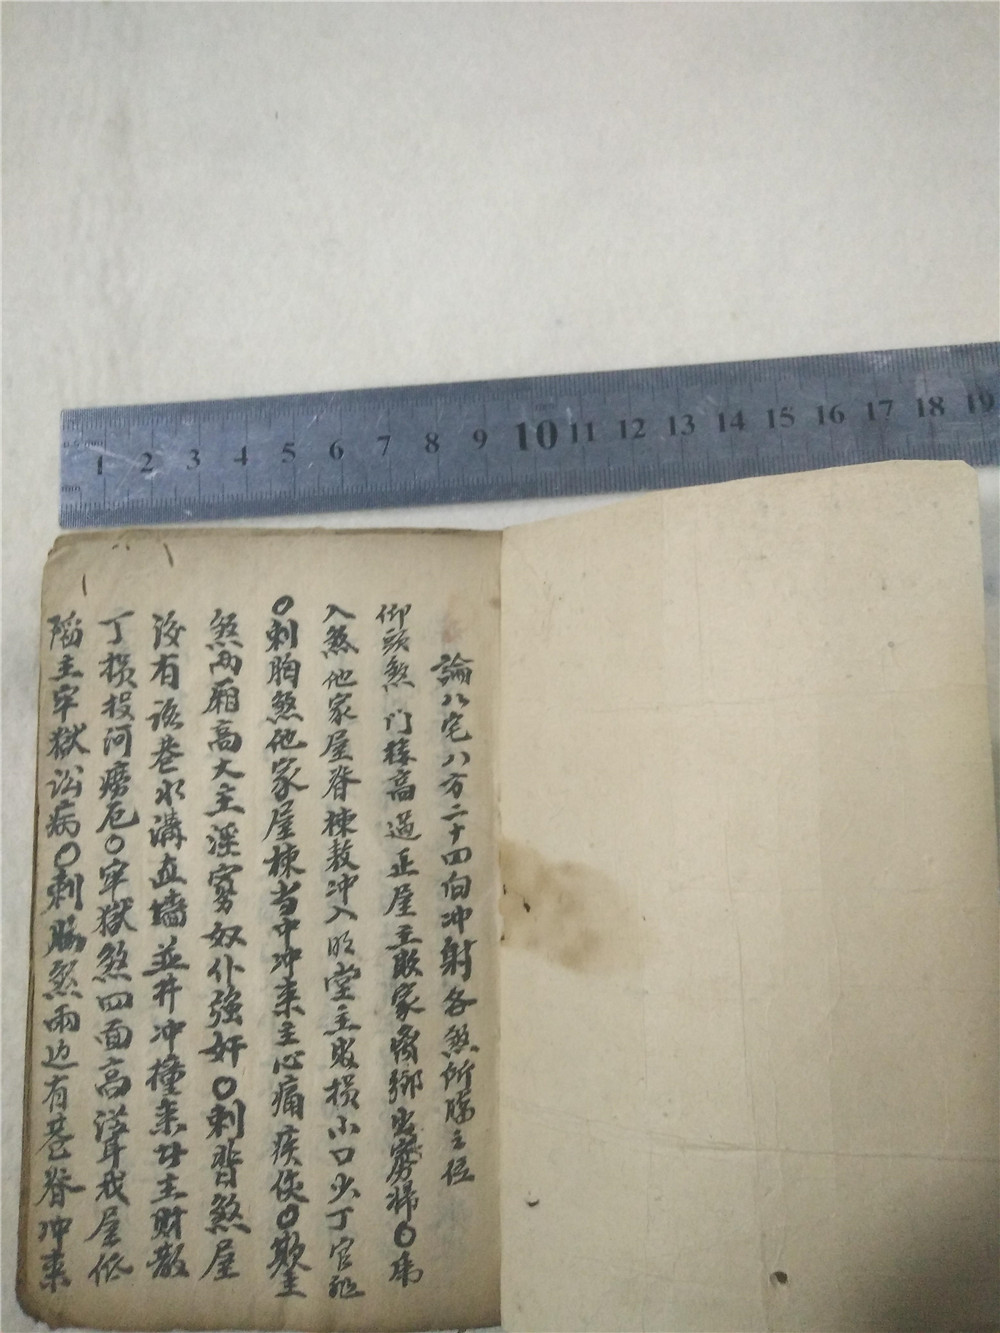 1 2 3 4 5 6 7 8 9 10 11 12 13 14 15 16 17 18 19
0.5 mm
論八宅八方二十四向冲射各煞所臨之位
仰頭煞 门楼高過正屋主敗家离鄉出寡婦〇
入煞他家屋脊棟 冲入明堂主敗損小口少丁官
〇刺胸煞他家屋棟当中冲来主心痛疾 〇欺主
煞两廂高大主淫 奴仆強奸〇刺背煞屋
没有 巷水溝直墙並井冲撞来 主財散
丁损投河 厄〇牢獄煞四面高 我屋低
陷主牢獄讼病〇刺脇煞兩边有巷脊冲来